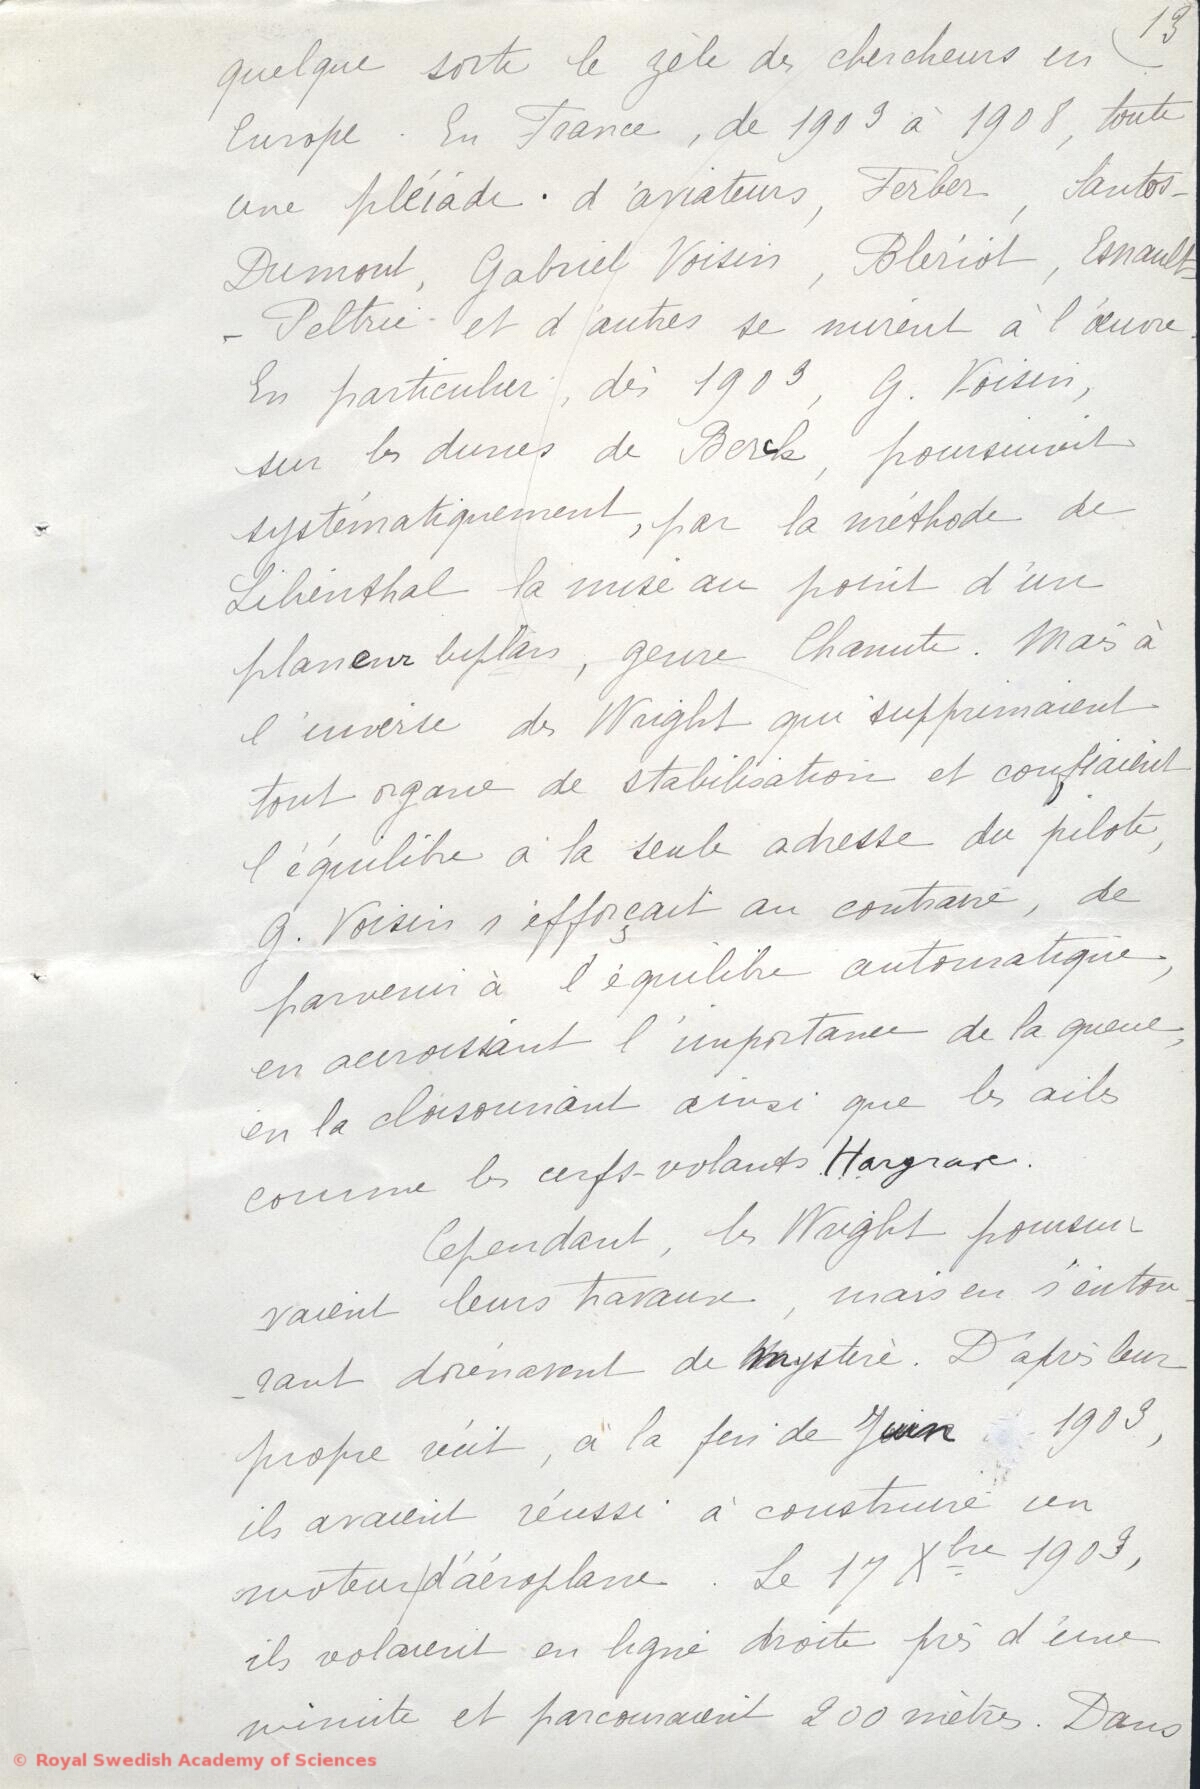 13
quelque sorte le zèle des chercheurs en
Europe. En France, de 1903 à 1908, toute
une pléiade d'aviateurs, Ferber, Santos-
Dumont, Gabriel Voisin, Blériot, Esnault-
- Peltrie et d'autres se mirent à l'œuvre.
En particulier, dès 1903, G. Voisin,
sur les dunes de Berck, poursuivait
systématiquement, par la méthode de
Lilienthal la mise au point d'un
planeur biplan, genre Chanute. Mais à
l'inverse des Wright qui supprimaient
tout organe de stabilisation et confiaient
l'équilibre à la seule adresse du pilote,
G. Voisin s'efforçait au contraire, de
parvenir à l'équilibre automatique,
en accroissant l'importance de la queue,
en la cloisonnant ainsi que les ailes
comme les cerfs-volants Hargrave.
Cependant, les Wright poursui
vaient leurs travaux, mais en s'entou-
-rant dorénavent de mystère. D'après leur
propre récit, à la fin de Juin 1903,
ils avaient réussi à construire un
moteur d'aéroplane. Le 17 Xbre 1903,
ils volaient en ligne droite près d'une
minute et parcouraient 200 mètres. Dans
© Royal Swedish Academy of Sciences